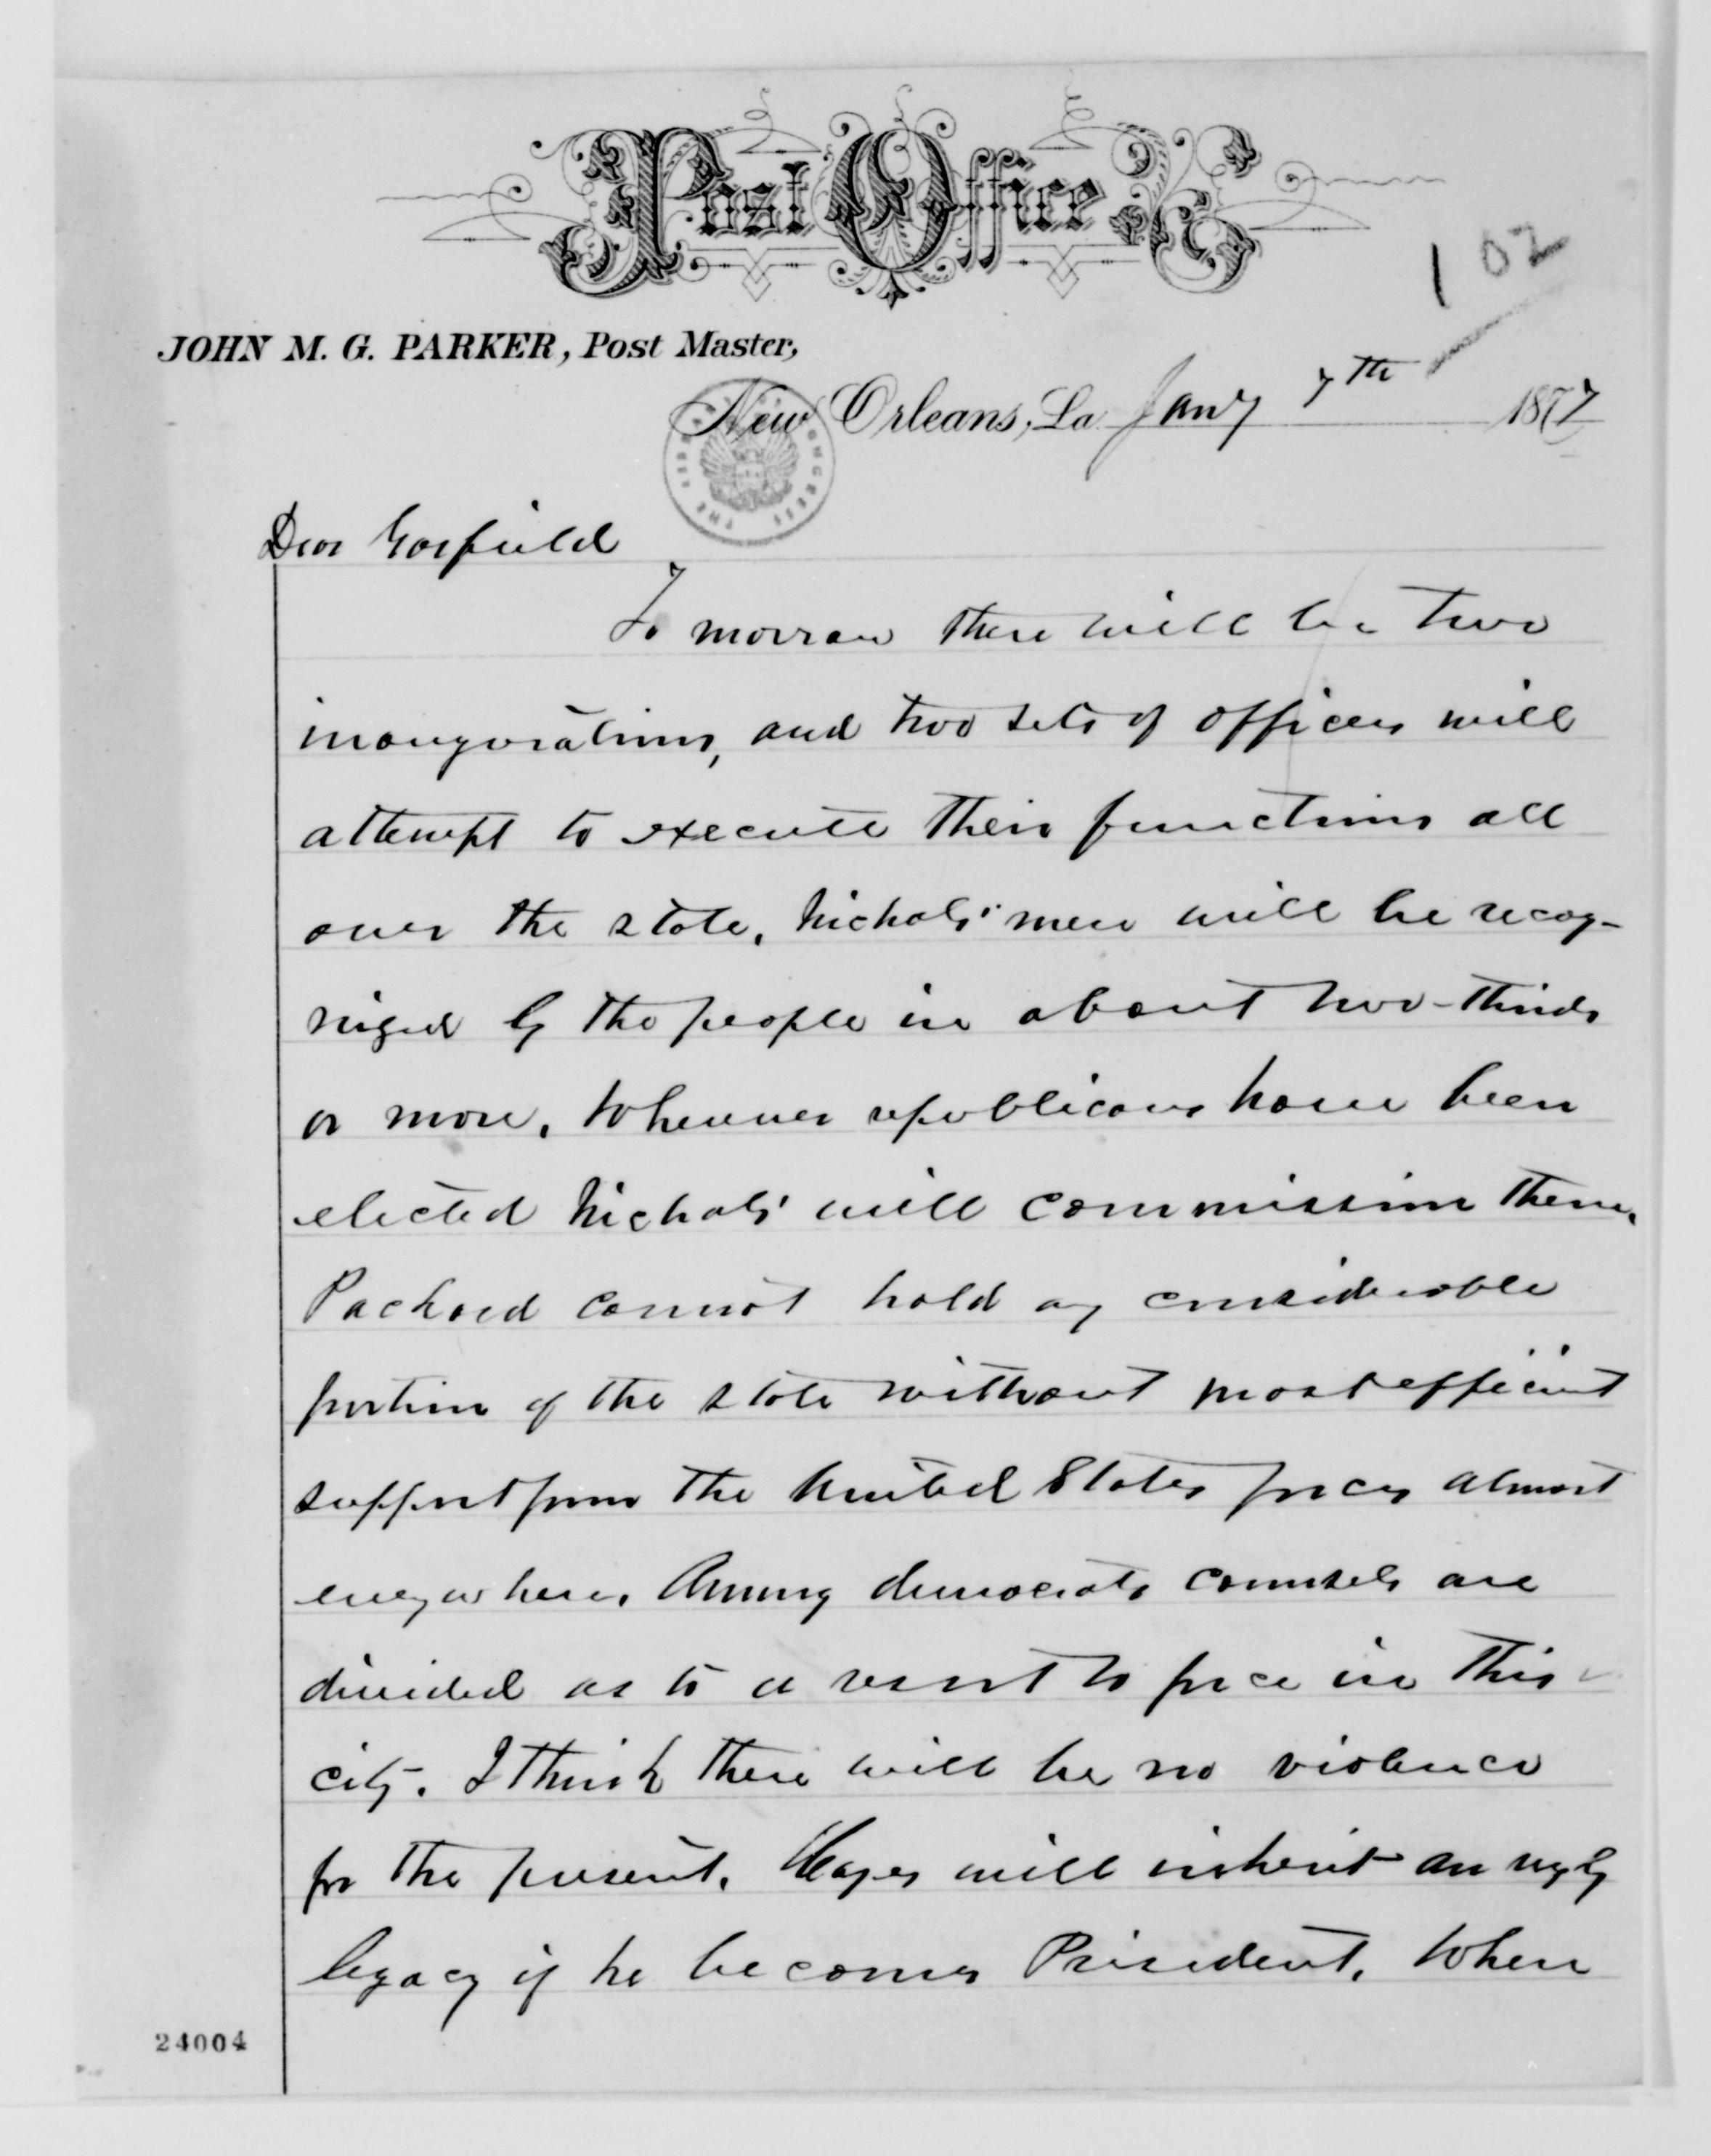 Post Office
102
JOHN M. G. PARKER, Post Master,
New Orleans, La. Jany 7th 1877
THE LIBRARY OF CONGRESS
Dear Garfield
To morrow there will be two
inaugurations, and two sets of officers will
attempt to execute their functions all
over the state. Nichols' men will be recog-
nized by the people in about two-thirds
or more. Wherever republicans have been
elected Nichols' will commission them.
Packard cannot hold any considerable
portion of the state without most efficient
support from the United States forces almost
everywhere. Among democrats counsels are
divided as to a resort to force in this
city. I think there will be no violence
for the present. Hayes will inherit an ugly
legacy if he becomes President. When
24004